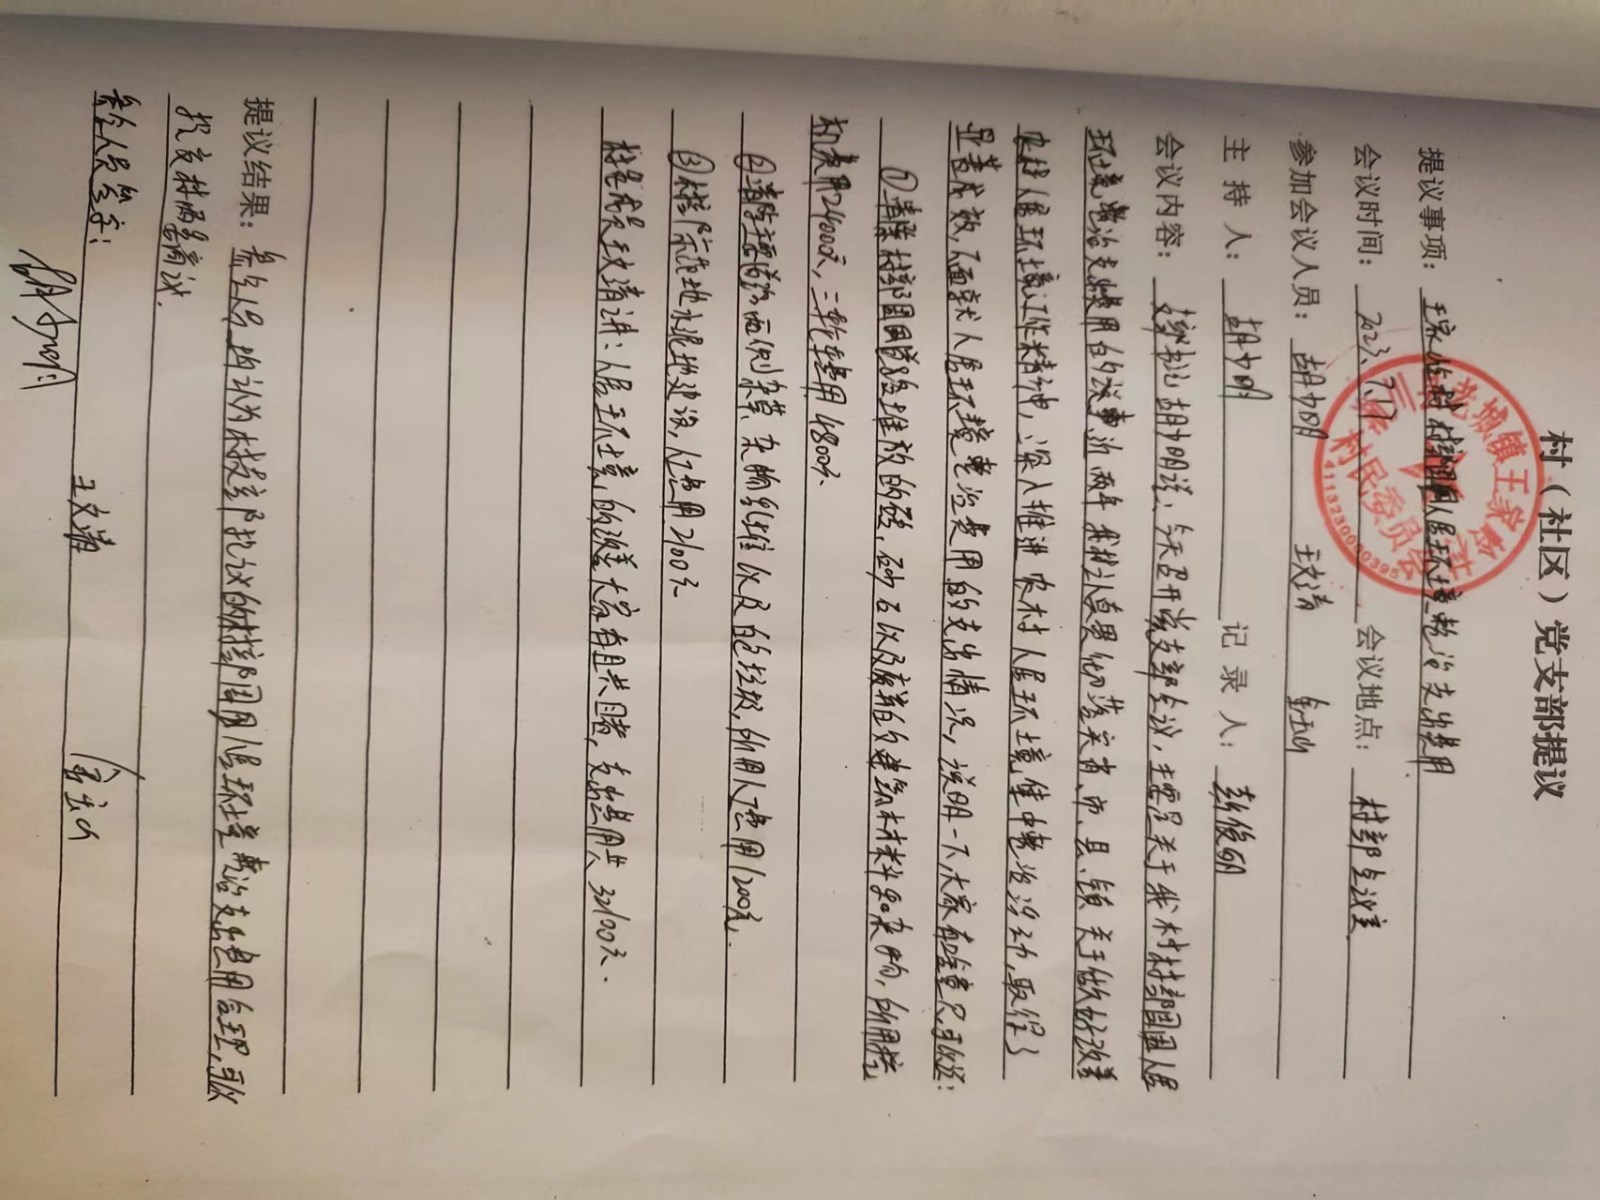 村（社区）党支部提议
提议事项：王家岭村村部周围人居环境整治支出费用
会议时间：2023.7.17 会议地点：村部会议室
参加会议人员：胡少明 王文清
主持人：胡少明 记录人：
会议内容：支部书记胡少明说：今天召开党支部会议，主要是关于我村村部周围人居
环境整治支出费用的议事，近两年我村认真贯彻落实省、市、县、镇关于做好改善
农村人居环境工作精神，深入推进农村人居环境集中整治活动，取得了
显著成效，下面就人居环境整治费用的支出情况，说明一下，大家
①清除村部周围堆放的砖，砂石以及废弃的建筑材料和杂物，所用挖
机费用24000元，三轮车费用4800元
②清除道路两侧杂草、杂物以及白色垃圾，所用人工费用1200元.
③村部水泥地建设，人工费用2100元
村委成员王文清讲：人居环境的改善大家有目共睹，支出费用共32100元.
提议结果：参会人员均认为村支部提议的村部周围人居环境整治支出费用合理，可以
提交村两委商议.
参会人员签字：
胡少明 王文清
三 龙城镇王家岭村
村民委员会
4113230000395